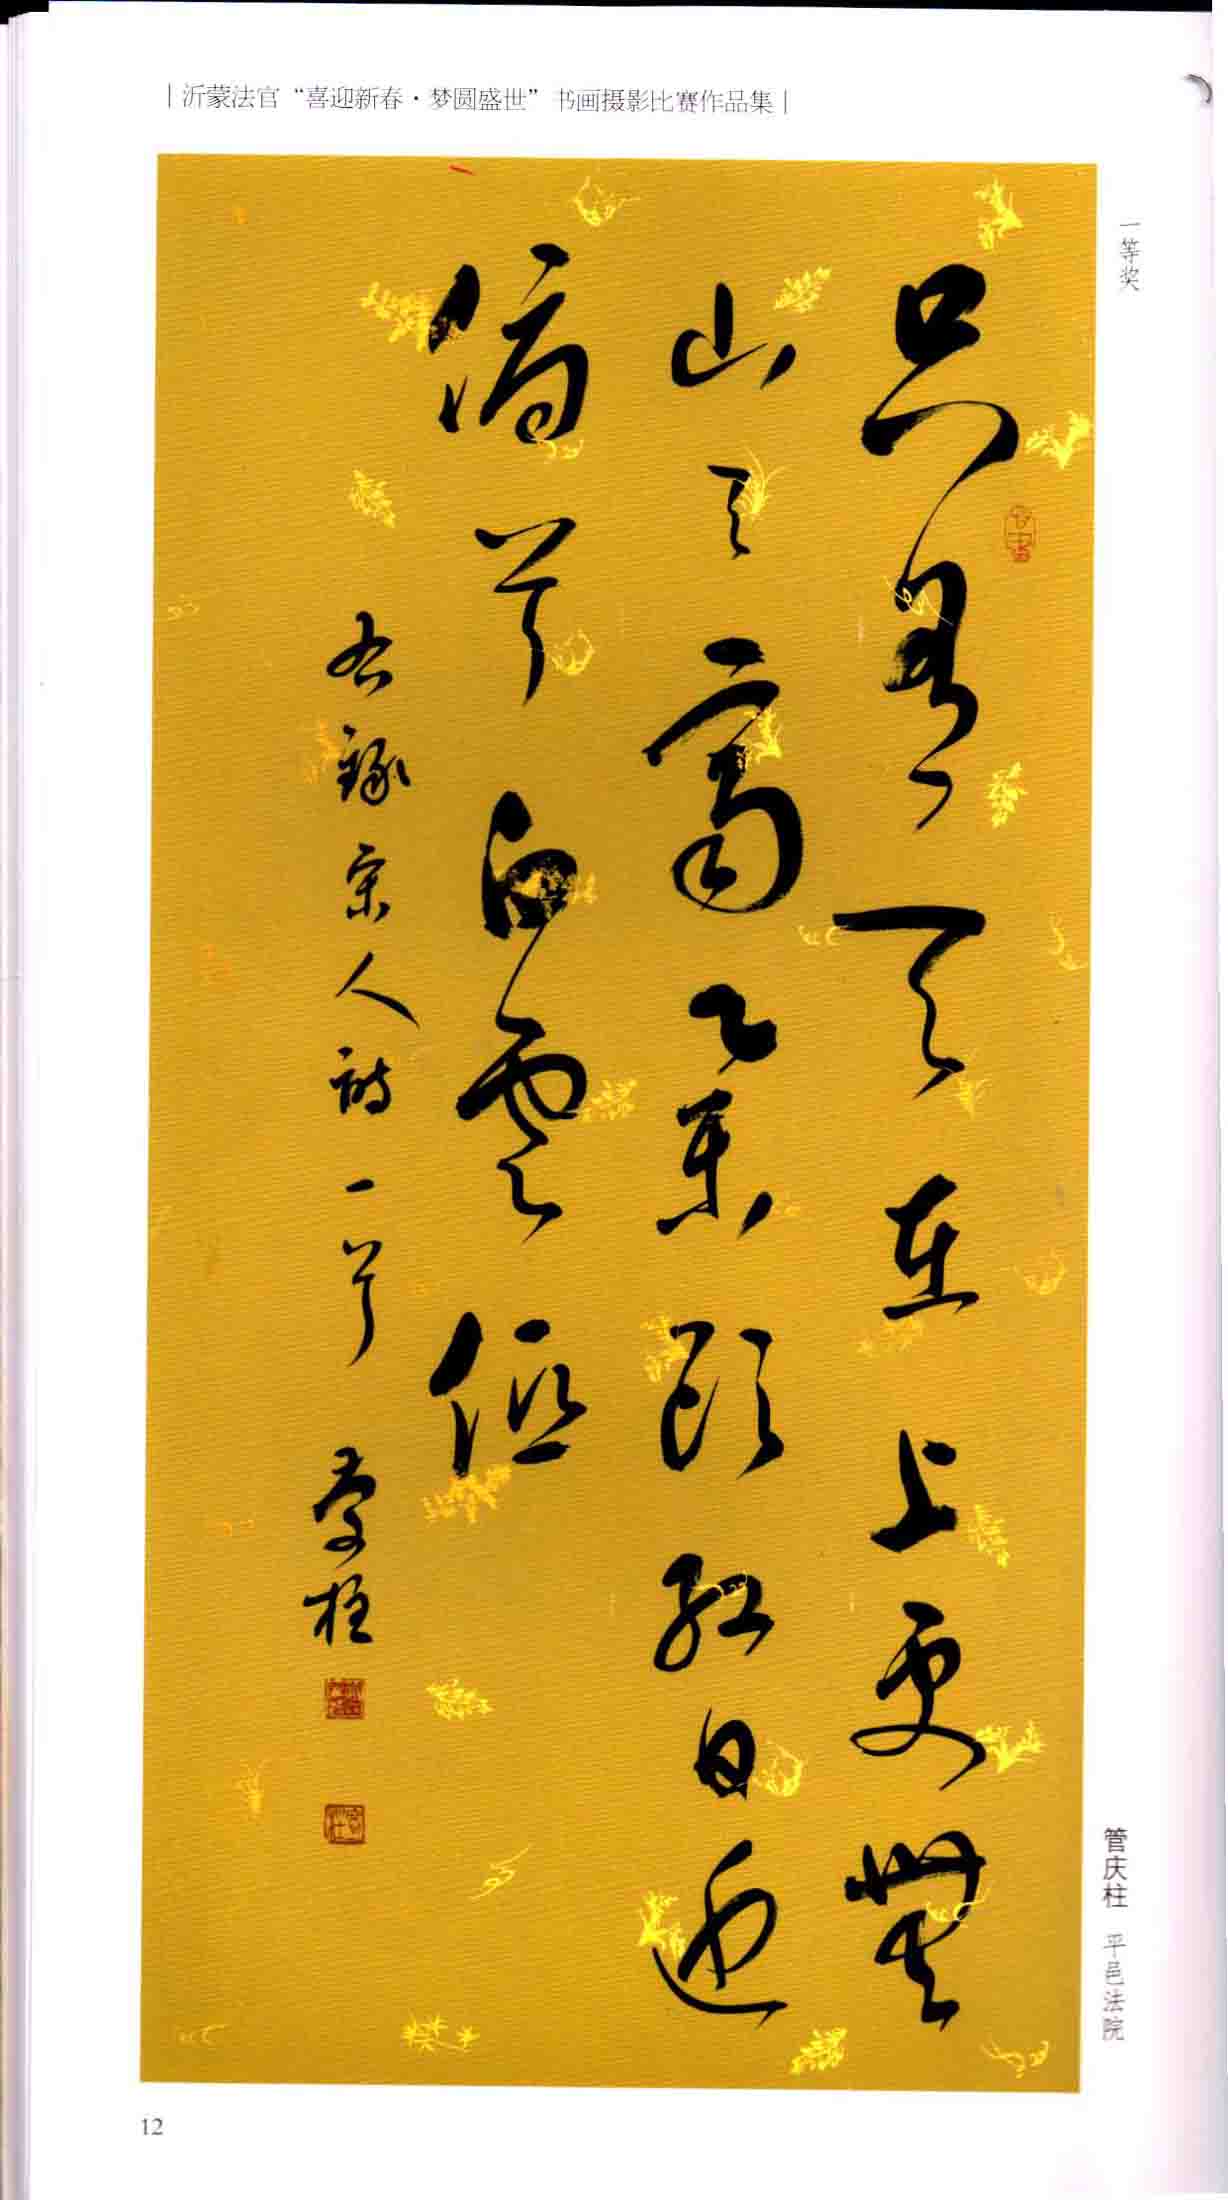 |沂蒙法官“喜迎新春·梦圆盛世”书画摄影比赛作品集|
一等奖
只有天在上更無
山与齊舉頭紅日近
俯首白雲低
右録宋人詩一首 慶柱
管庆柱 平邑法院
12